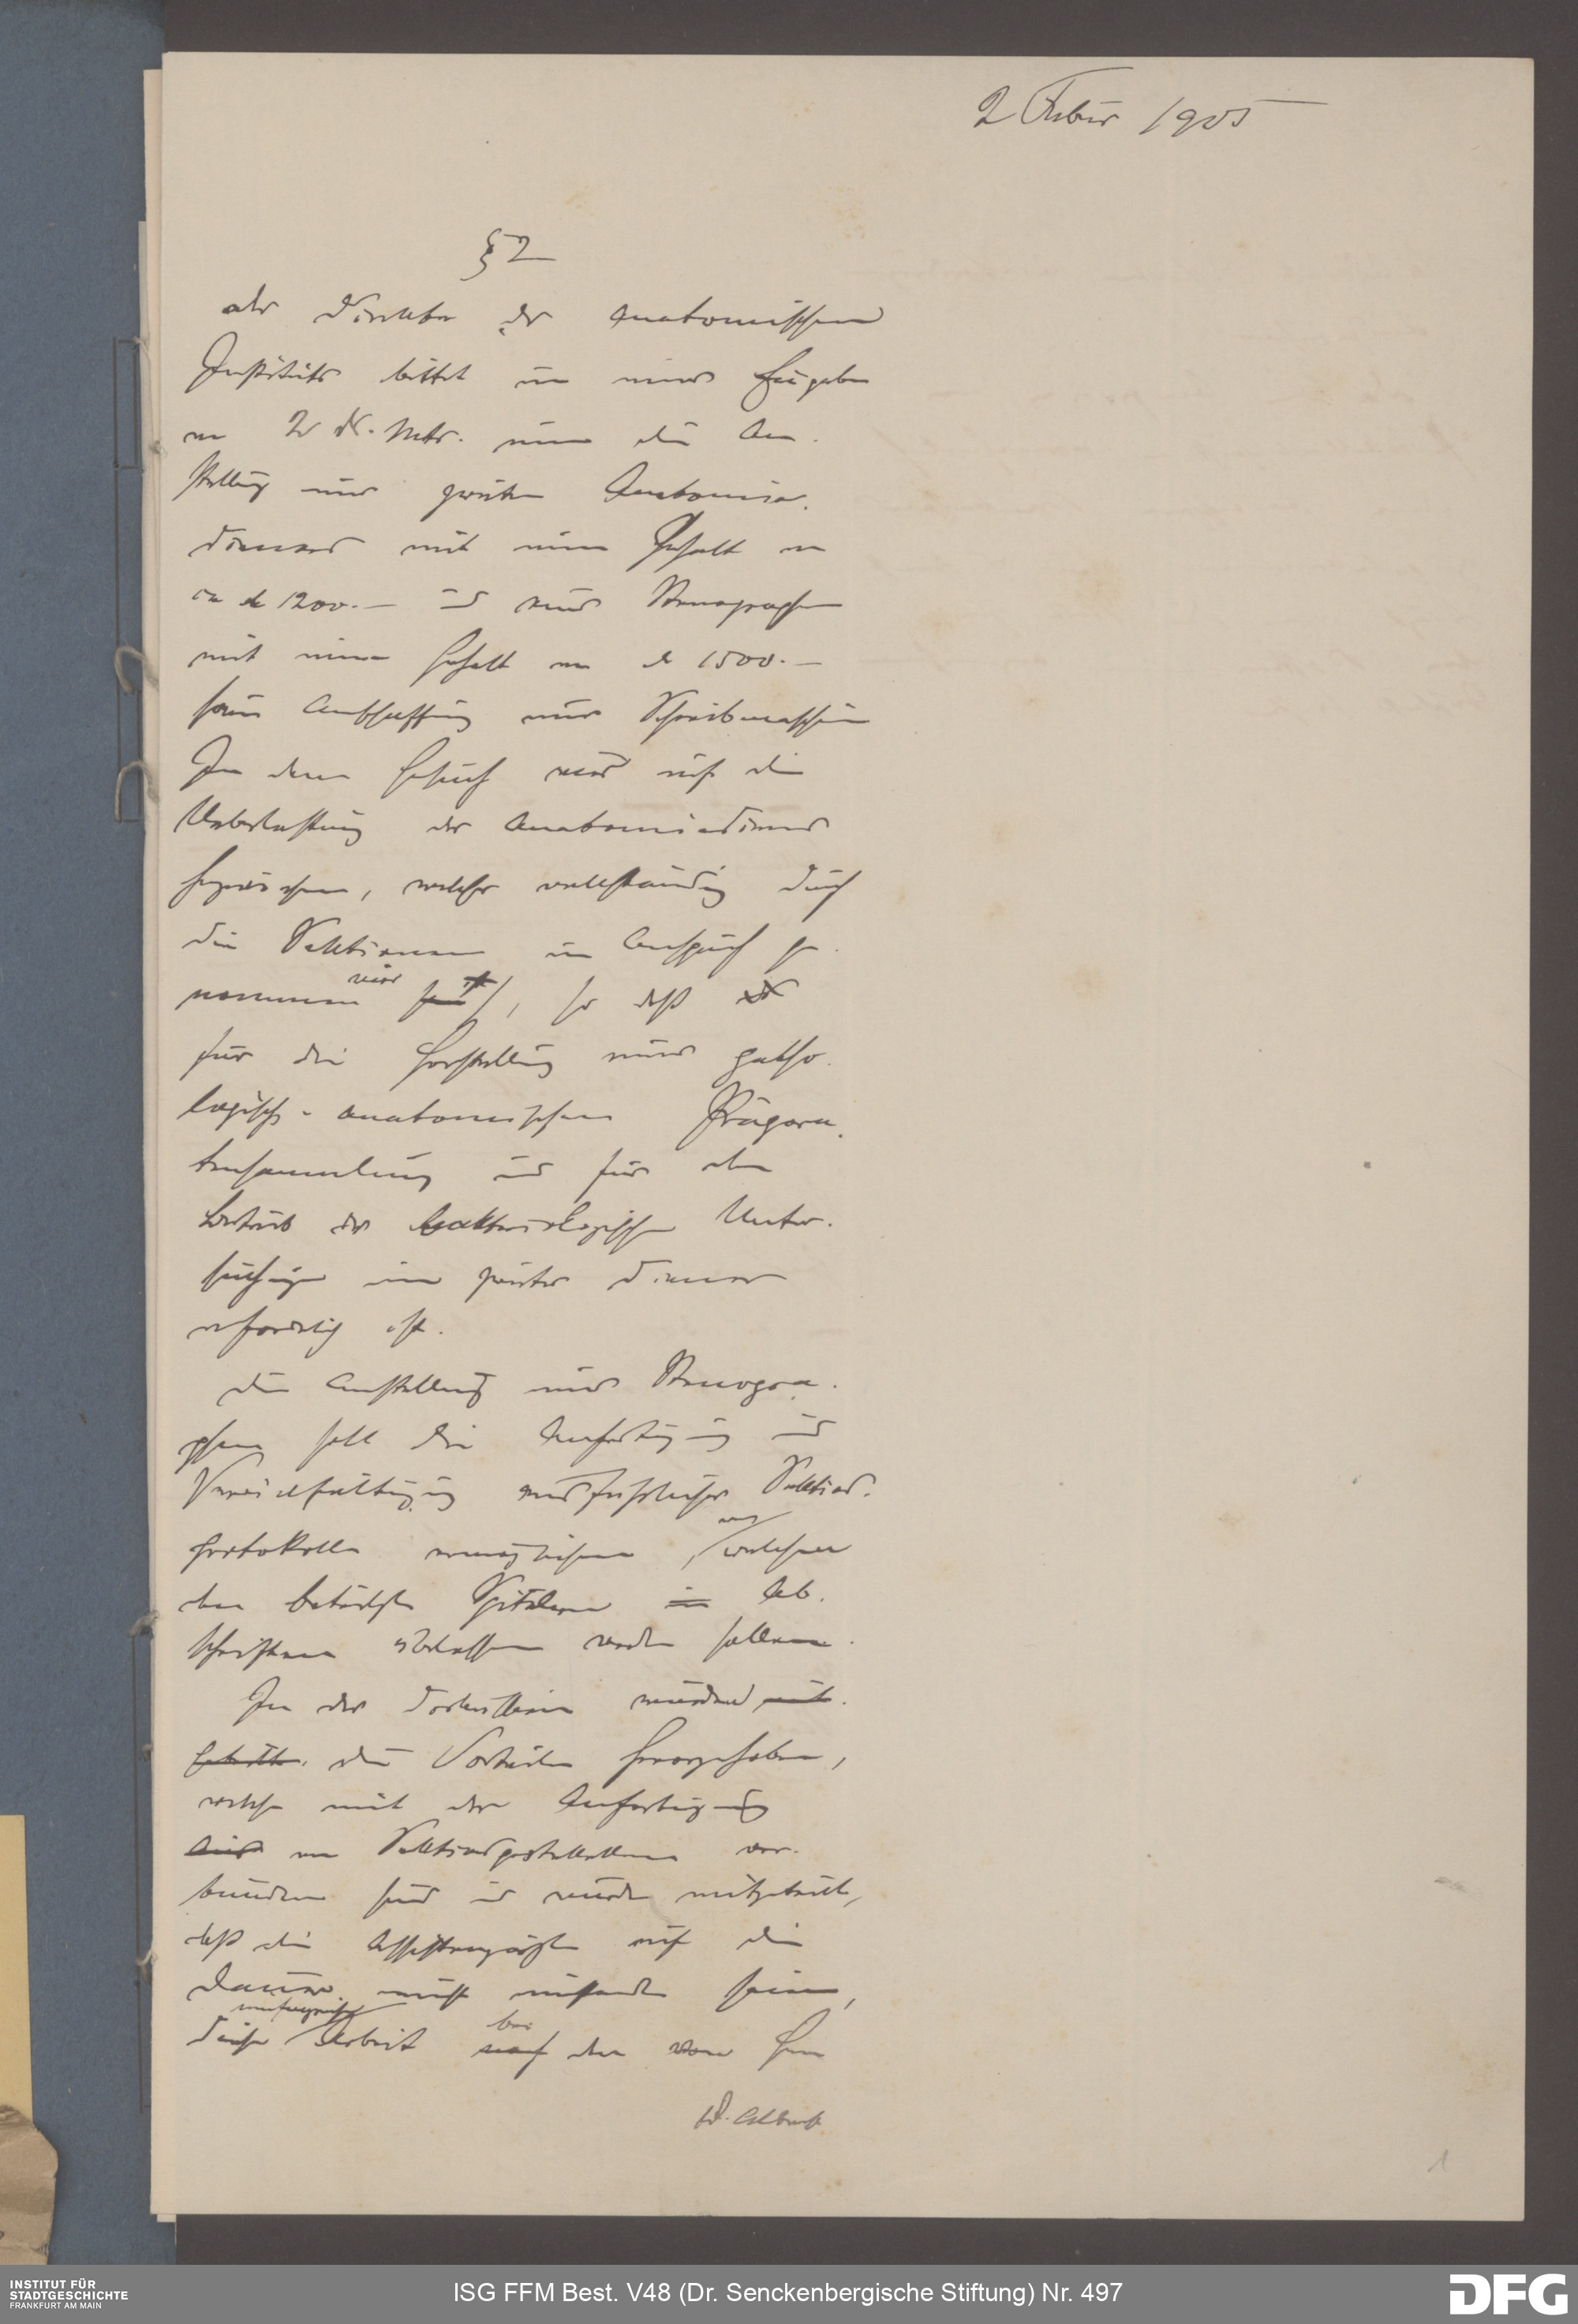 2 Febur 1905
§ 2
der Direktor des anatomischen
Instituts bittet in einer Eingabe
vom 2 d. Mts. um die An-
stellung eines zweiten Anatomie-
dieners mit einem Gehalt von
ca M 1200.— und eines Stenographen
mit einem Gehalt von M 1500.—
sowie Anschaffung einer Schreibmaschine
In dem Gesuch wird auf die
Ueberlastung des Anatomiedieners
hingewiesen, welcher vollständig durch
die Sektionen in Anspruch ge-
nommen wird, so daß
für die Herstellung einer patho-
logisch-anatomischen Präpara-
tensammlung und für den
Betrieb der bakteriologischen Unter-
suchungen ein zweiter Diener
erforderlich ist.
Die Anstellung eines Stenogra-
phen soll die Anfertigung und
Vervielfältigung ausführlicher Sektions-
protokolle ermöglichen, welche
den beteiligten Spitälern in Ab-
schriften überlassen werden sollen.
In der Diskussion wurden
die Vorteile hervorgehoben,
welche mit der Anfertigung
von Sektionsprotokollen ver-
bunden sind und wurde mitgeteilt,
daß die Assistenzärzte auf die
Dauer nicht imstande seien,
diese umfangreiche Arbeit bei den von Herrn
Dr. Albrecht
1
INSTITUT FÜR
STADTGESCHICHTE
FRANKFURT AM MAIN
ISG FFM Best. V48 (Dr. Senckenbergische Stiftung) Nr. 497
DFG